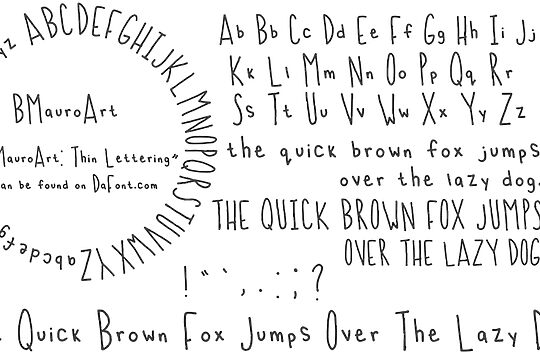 ABCDEFGHIJKLMNOPQRSTUVWXYZ
abcdefg
yz
BMauroArt
MauroArt: Thin Lettering"
an be found on DaFont.com
Ab Bb Cc Dd Ee Ff Gg Hh Ii Jj
Kk Ll Mm Nn Oo Pp Qq Rr
Ss Tt Uu Vv Ww Xx Yy Zz
the quick brown fox jumps
over the lazy dog.
THE QUICK BROWN FOX JUMPS
OVER THE LAZY DOG
! " ` , . : ; ?
. Quick Brown Fox Jumps Over The Lazy D